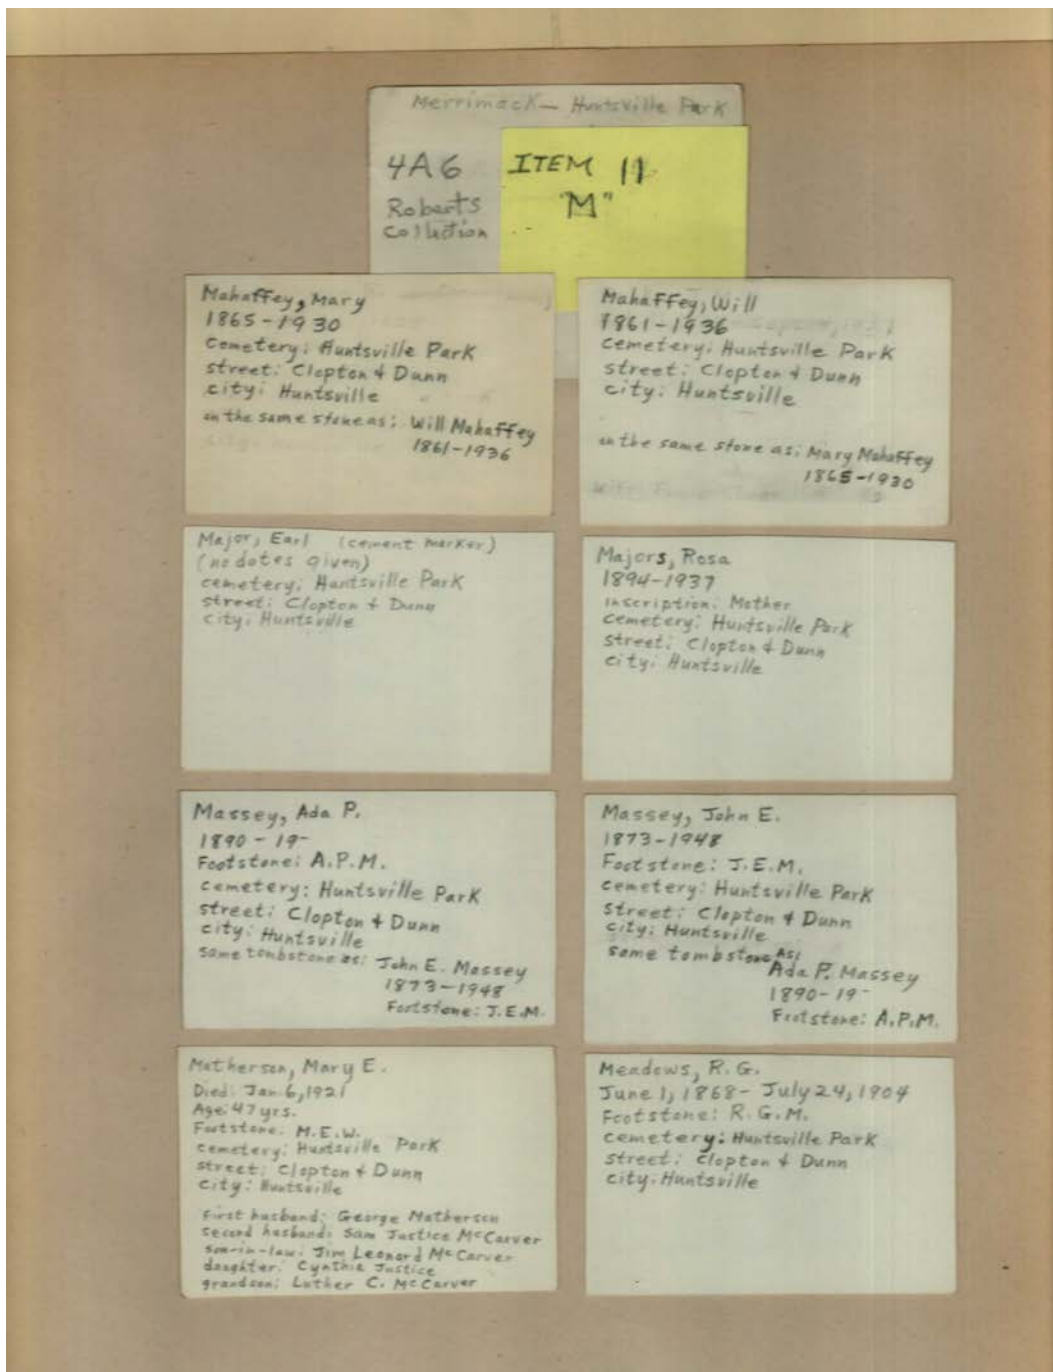 Merrimack - Huntsville Park
4A6
Roberts
Collection
ITEM 11
"M"
Mahaffey, Mary
1865-1930
Cemetery: Huntsville Park
street: Clopton & Dunn
city: Huntsville
on the same stone as: Will Mahaffey
1861-1936
Mahaffey, Will
1861-1936
cemetery: Huntsville Park
street: Clopton & Dunn
city: Huntsville
on the same stone as: Mary Mahaffey
1865-1930
Major, Earl (cement marker)
(no dates given)
cemetery: Huntsville Park
street: Clopton & Dunn
city: Huntsville
Majors, Rosa
1894-1937
inscription: Mother
cemetery: Huntsville Park
street: Clopton & Dunn
city: Huntsville
Massey, Ada P.
1890 - 19-
Footstone: A.P.M.
cemetery: Huntsville Park
street: Clopton & Dunn
city: Huntsville
same tombstone as: John E. Massey
1873-1948
Footstone: J.E.M.
Massey, John E.
1873-1948
Footstone: J.E.M.
cemetery: Huntsville Park
street: Clopton & Dunn
city: Huntsville
same tombstone As:
Ada P. Massey
1890-19-
Footstone: A.P.M.
Matherson, Mary E.
Died: Jan. 6, 1921
Age: 47 yrs.
Footstone: M.E.W.
cemetery: Huntsville Park
street: Clopton & Dunn
city: Huntsville
first husband: George Matherson
second husband: Sam Justice McCarver
son-in-law: Jim Leonard McCarver
daughter: Cynthia Justice
grandson: Luther C. McCarver
Meadows, R. G.
June 1, 1868 - July 24, 1904
Footstone: R.G.M.
cemetery: Huntsville Park
street: Clopton & Dunn
city: Huntsville